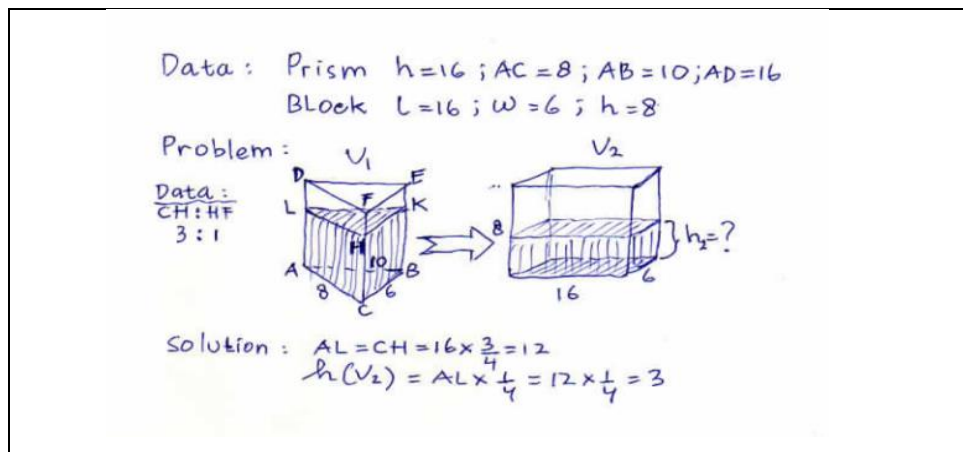 Data : Prism h=16 ; AC=8 ; AB=10 ; AD=16
BLock L=16 ; W=6 ; h=8
Problem :
V₁
V₂
Data :
CH : HF
3 : 1
D
E
F
L
K
H
A
10
B
8
6
C
8
h₂=?
16
6
Solution : AL = CH = 16 × 3/4 = 12
h(V₂) = AL × 1/4 = 12 × 1/4 = 3